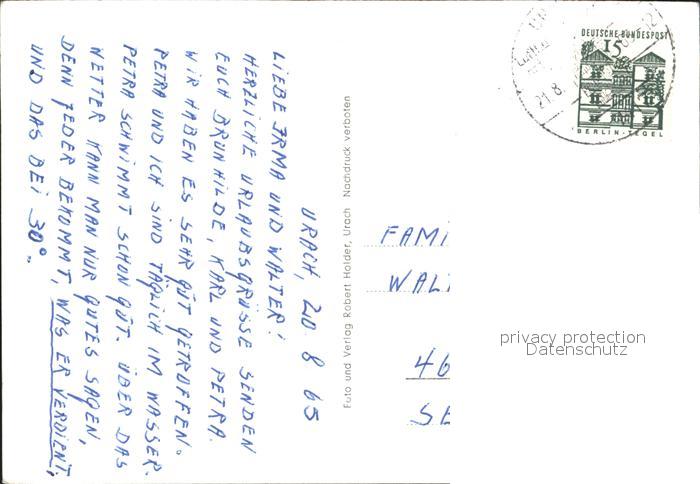 URACH, 20. 8. 65
LIEBE IRMA UND WALTER!
HERZLICHE URLAUBSGRÜSSE SENDEN
EUCH BRUNHILDE, KARL UND PETRA.
WIR HABEN ES SEHR GUT GETROFFEN.
PETRA UND ICH SIND TÄGLICH IM WASSER.
PETRA SCHWIMMT SCHON GUT. ÜBER DAS
WETTER KANN MAN NUR GUTES SAGEN,
DENN JEDER BEKOMMT, WAS ER VERDIENT,
UND DAS BEI 30°.
Foto und Verlag Robert Holder, Urach Nachdruck verboten
DEUTSCHE BUNDESPOST
15
BERLIN-TEGEL
21.8.
FAMI
WAL
46
SE
privacy protection
Datenschutz